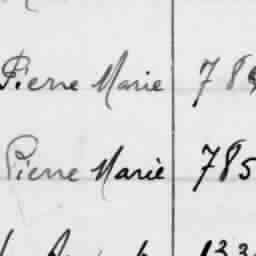 Pierre Marie 78
Pierre Marie 785